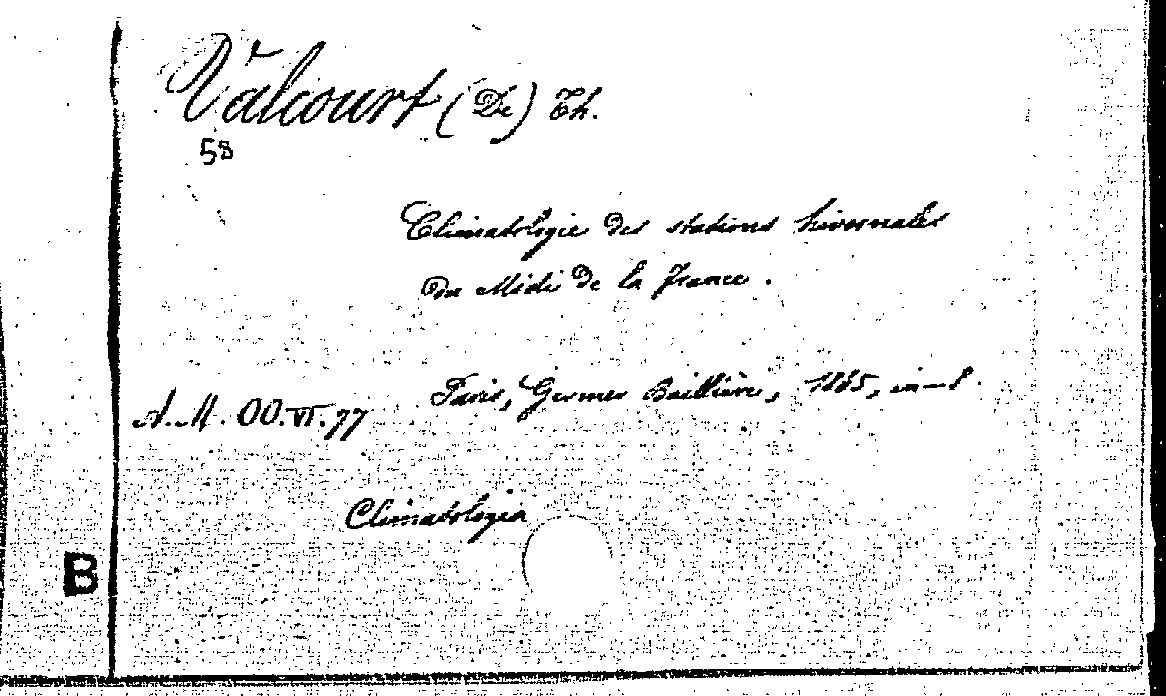 Valcourt (De) Th.
58
Climatologie des stations hivernales
du Midi de la France.
Paris, Germer Baillière, 1865, in-8.
A.M. OO.VI.77
Climatologia
B